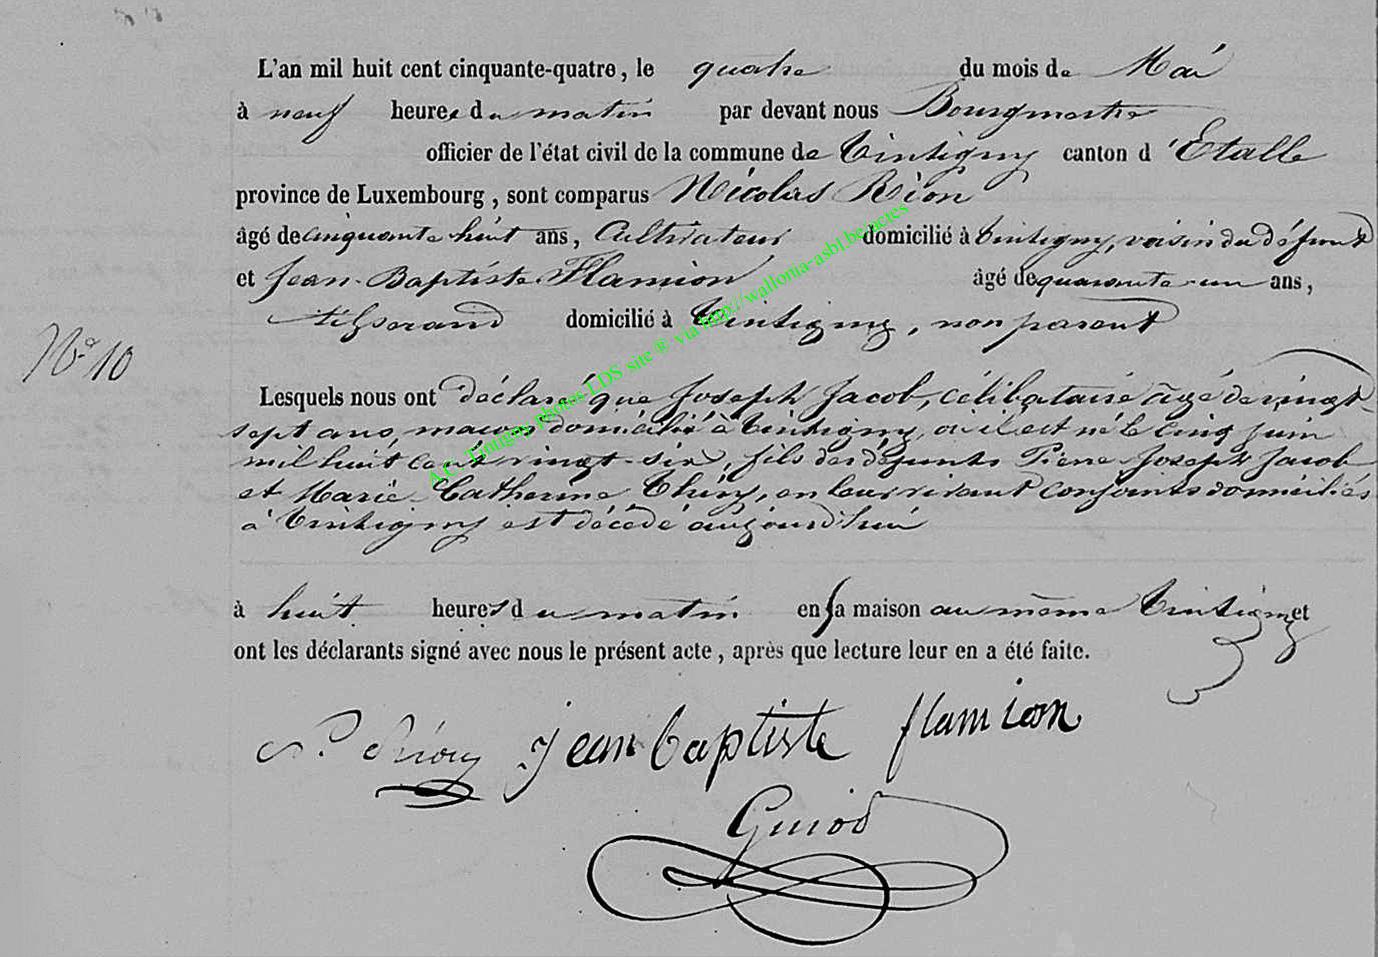 L'an mil huit cent cinquante-quatre, le quatre du mois de Mai
à neuf heures du matin par devant nous Bourgmestre
officier de l'état civil de la commune de Tintigny canton d'Etalle
province de Luxembourg, sont comparus Nicolas Rion
âgé de cinquante huit ans, Cultivateur domicilié à Tintigny, voisin du défunt
et Jean-Baptiste Flamion âgé de quarante-un ans,
tisserand domicilié à Tintigny, non parent
N° 10
Lesquels nous ont déclaré que Joseph Jacob, célibataire âgé de vingt-
sept ans, maçon domicilié à Tintigny, où il est né le cinq juin
mil huit cent vingt-six, fils des défunts Pierre Joseph Jacob
et Marie Catherine Thiry, en leur vivant conjoints domiciliés
à Tintigny est décédé aujourd'hui
à huit heures du matin en sa maison au même Tintigny et
ont les déclarants signé avec nous le présent acte, après que lecture leur en a été faite.
N. Rion Jean baptiste flamion
Guiod
A.C. Tintigny photos LDS site ® via http://wallonia-asbl.be/actes